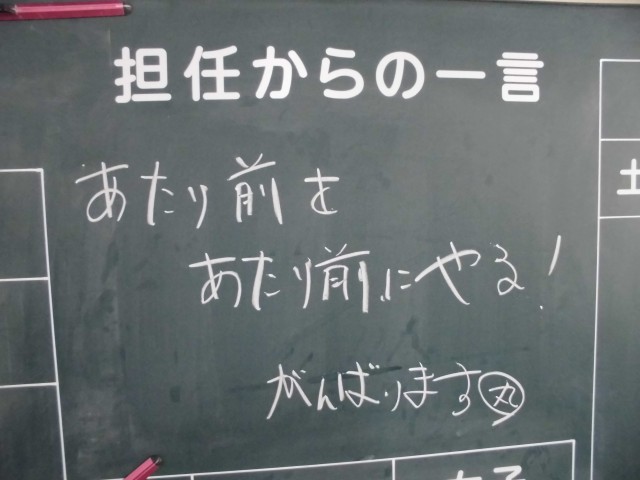 担任からの一言
あたり前を
あたり前にやる!
がんばります丸
土
女子